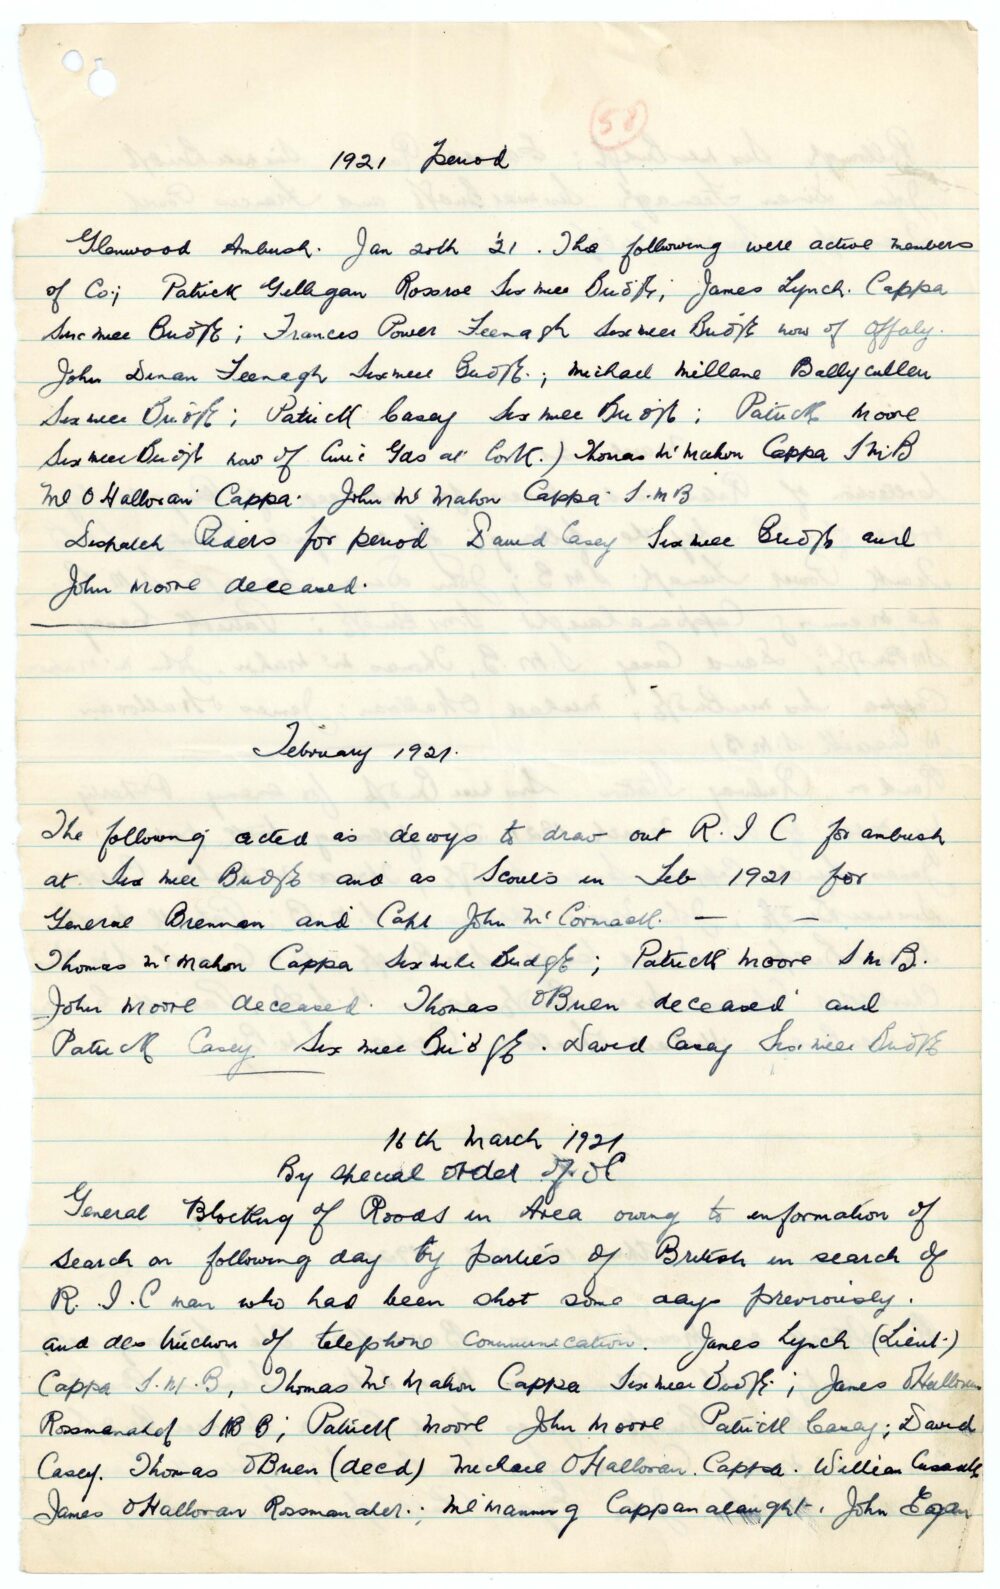 58
1921 Period
Glenwood Ambush. Jan 20th '21. The following were active members
of Coy; Patrick Gilligan Rossroe Sixmilebridge; James Lynch. Cappa
Sixmilebridge; Frances Power Feenagh Sixmilebridge now of Offaly.
John Dinan Feenagh Sixmilebridge.; Michael Millane Ballycullen
Sixmilebridge; Patrick Casey Sixmilebridge; Patrick Moore
Sixmilebridge now of Civic Gas at Cork.) Thomas McMahon Cappa SMB
Ml O Halloran Cappa. John McMahon Cappa S.M.B
Dispatch Riders for period David Casey Sixmilebridge and
John Moore deceased.
February 1921.
The following acted as decoys to draw out R.I C for ambush
at Sixmilebridge and as Scouts in Feb 1921 for
General Brennan and Capt John McCormack. — —
Thomas McMahon Cappa Sixmilebridge; Patrick Moore S M B.
John Moore deceased. Thomas O'Brien deceased and
Patrick Casey Sixmilebridge. David Casey Sixmilebridge
16th March 1921
By special order of OC
General Blocking of Roads in Area owing to information of
search on following day by parties of British in search of
R.I.C man who had been shot some days previously.
and destruction of telephone communication. James Lynch (Lieut.)
Cappa S.M.B, Thomas McMahon Cappa Sixmilebridge; James O'Halloran
S M B; Patrick Moore John Moore Patrick Casey; David
Casey. Thomas O'Brien (decd) Michael O'Halloran. Cappa. William
James O'Halloran Rossmanaher.; Ml Manning Cappanalaught. John Egan